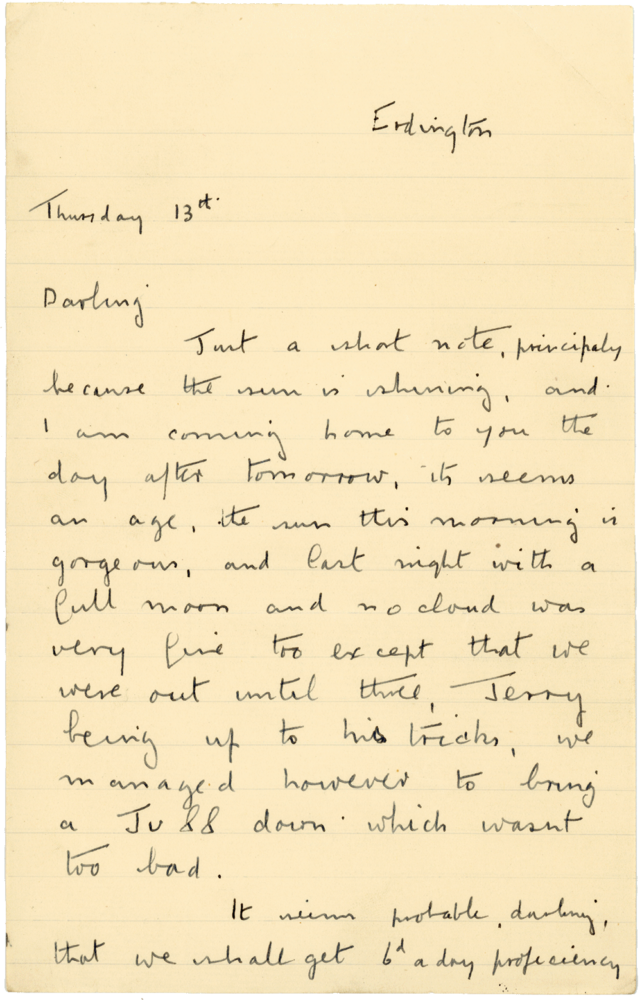 Erdington
Thursday 13th.
Darling
Just a short note, principaly
because the sun is shining, and
I am coming home to you the
day after tomorrow, its seems
an age, the sun this morning is
gorgeous, and last night with a
full moon and no cloud was
very fine too except that we
were out until three, Jerry
being up to his tricks, we
managed however to bring
a Ju 88 down which wasnt
too bad.
It seems probable, darling,
that we shall get 6d a day proficiency